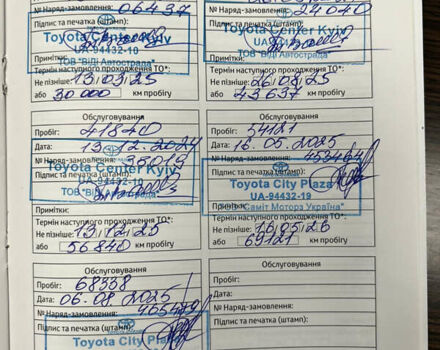 № Наряд-замовлення: 06437
Підпис та печатка (штамп):
Toyota Center Kyiv
UA-94432-10
ТОВ "ВіДі Автострада"
Примітки:
Термін наступного проходження ТО*:
Не пізніше: 13.03.25
або 30000 км пробігу
№ Наряд-замовлення: 24040
Підпис та печатка (штамп):
Toyota Center Kyiv
ТОВ "ВіДі Автострада"
Примітки:
Термін наступного проходження ТО*:
Не пізніше: 26.08.25
або 43637 км пробігу
Обслуговування
Пробіг: 41840
Дата: 13.12.2024
№ Наряд-замовлення: 35019
Підпис та печатка (штамп):
Toyota Center Kyiv
UA-94432-10
ТОВ "ВіДі
Примітки:
Термін наступного проходження ТО*:
Не пізніше: 13.12.25
або 56840 км пробігу
Обслуговування
Пробіг: 54121
Дата: 16.05.2025
№ Наряд-замовлення: 453464
Підпис та печатка (штамп):
Toyota City Plaza
UA-94432-19
ТОВ "Саміт Мотора Україна"
Примітки:
Термін наступного проходження ТО*:
Не пізніше: 16.05.26
або 69121 км пробігу
Обслуговування
Пробіг: 68338
Дата: 06.08.2025
№ Наряд-замовлення:
Підпис та печатка (штамп):
Toyota City Plaza
Обслуговування
Пробіг:
Дата:
№ Наряд-замовлення:
Підпис та печатка (штамп):